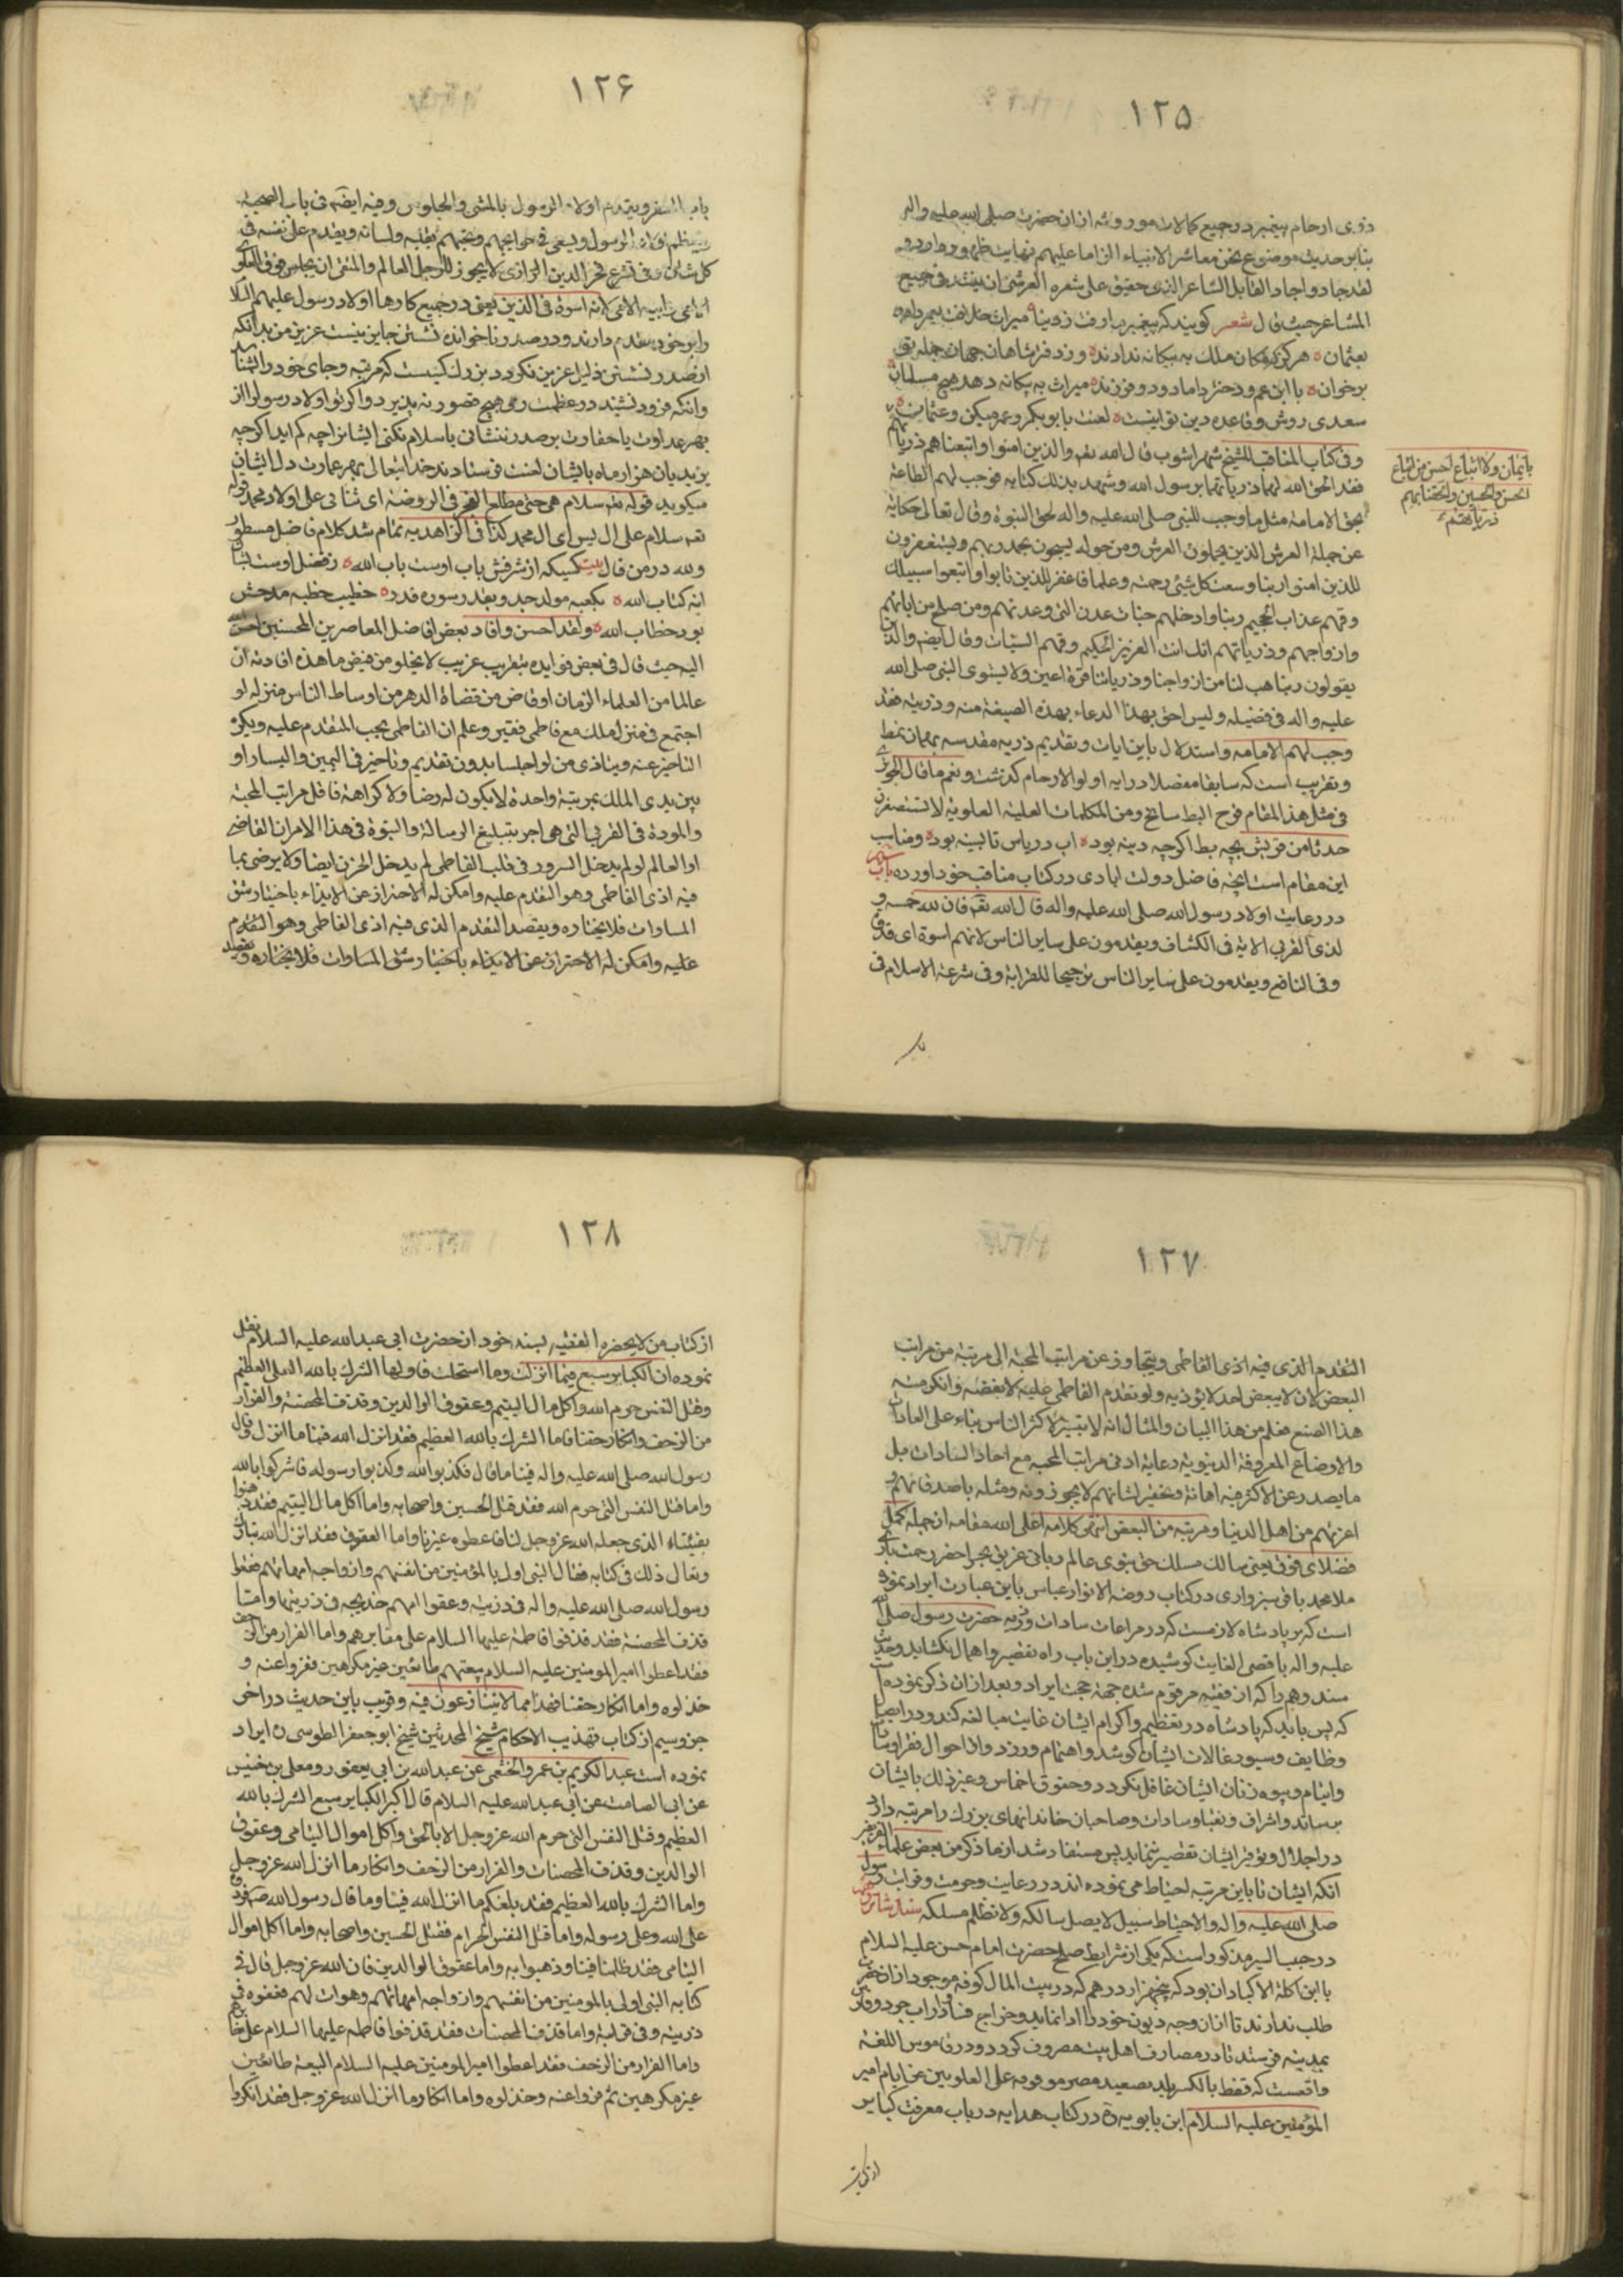 ١٢٥
ذوی ارحام پیغمبر در جمیع کمالات موروثه از ان حضرت صلی الله علیه واله
بنابر حدیث موضوع نحن معاشر الانبیاء الزاما علیهم نهایت ظهور دارد
لقد جاد واجاد القایل الشاعر الذی حقیق علی شعره العرشی ان ینشد فی جمیع
المشاعر حیث قال شعر کویند که پیغمبر ما رفت ز دنیا میراث خلافت
بعثمان هرکز ملک به بیکانه ندادند رو دفتر شاهان جهان جمله تو
برخوان با ابن عم ودختر وداماد ودو فرزند میراث به بیکانه دهد هیچ مسلمان
سعدی روش وقاعده دین تو اینست لعنت بابوبکر وعمر میکن وعثمان
وفی کتاب المناقب للشیخ شهراشوب قال الله تعه والذین امنوا واتبعناهم ذریاتهم
فقد الحق الله لهما ذریاتهما برسول الله وشهد بذلک کتابه فوجب لهم الطاعة
بحق الامامة مثل ما وجب للنبی صلی الله علیه واله لحق النبوة وقال تعالی حکایة
عن حملة العرش الذین یحملون العرش ومن حوله یسبحون بحمد ربهم ویستغفرون
للذین امنوا ربنا وسعت کل شیئ رحمة وعلما فاغفر للذین تابوا واتبعوا سبیلک
وقهم عذاب الجحیم ربنا وادخلهم جنات عدن التی وعدتهم ومن صلح من ابائهم
وازواجهم وذریاتهم انک انت العزیز الحکیم وقهم السیئات وقال ایضه والذین
یقولون ربنا هب لنا من ازواجنا وذریاتنا قرة اعین ولا یستوی النبی صلی الله
علیه واله فی فضیلة ولیس احق بهذا الدعاء بهذه الصیغة منه وذریته فقد
وجب لهم الامامه واستدلال باین ایات وتقدیم ذریه مقدسه بهمان نمط
وتقریب است که سابقا مفصلا در ایه اولو الارحام کذشت ونعم ما قال
فی مثل هذ المقام فرخ البط سابح ومن الکلمات العلیة العلویة لا تستصغرن
حدثا من قریش بچه بط اکرچه دینه بود اب دریاش تا بسینه بود ومناسب
این مقام است انچه فاضل دولت ابادی در کتاب مناقب خود اورده باب
در رعایت اولاد رسول الله صلی الله علیه واله قال الله تعه فان لله خمسه و
لذی القربی الایه فی الکشاف ویقدمون علی سایر الناس لانهم اسوة ای قدوة
وفی النافع ویقدمون علی سایر الناس ترجیحا للقرابة وفی شرعة الاسلام فی
بایمان ولا اتباع احسن من اتباع
الحسن والحسین والحقنا بهم
ذریاتهم
١٢۶
باب السفر ویتقدم اولاد الرسول بالمشی والجلوس وفیه ایضه فی باب الصحبة
ویعظم اولاد الرسول ویسعی فی حوایجهم ویحبهم بقلبه ولسانه ویقدم علی نفسه فی
کل شئ وفی تشرع فخر الدین الرازی لا یجوز للرجل العالم والمتقی ان یجلس فوق العلوی
الامی لانه اسوة فی الذین یعنی در جمیع کارها اولاد رسول علیهم السلام
را بر خود مقدم دارند ودر صدر ناخوانده نشستن جایز نیست عزیز من بدانکه
از صدر نشستن ذلیل عزیز نکردد بزرک کیست که مرتبه وجای خود را شناسد
وانکه فرود نشیند در عظمت وی هیچ قصور نه پذیرد واکر تو اولاد رسول را از
بهر عداوت یا حقارت بر صدر ننشانی یا سلام نکنی ایشانرا چه کم اید اکرچه
یزیدیان هزار ماه بایشان لعنت فرستادند خدا یتعالی بهر عمارت دل ایشان
میکوید قوله تعه سلام هی حتی مطلع الفجر فی الروضة ای ثنائی علی اولاد محمد قوله
تعه سلام علی ال یس ای ال محمد کذا فی الزاهدیه تمام شد کلام فاضل مسطور
ولله در من قال بیت کسیکه از شرفش باب اوست باب الله ز فضل اوست
کتاب الله بکعبه مولد جد وبقدر سوره قدر خطیب خطبه مدحش
بود خطاب الله ولقد احسن وافاد بعض افاضل المعاصرین المحسنین احسن الله
الیه حیث قال فی بعض فوایده بتقریب غریب لا یخلو من فیض ما هذه افادته ان
عالما من العلماء الزمان او قاض من قضاة الدهر من اوساط الناس منزله لو
اجتمع فی منزل ملک مع فاطمی فقیر وعلم ان الفاطمی یحب المتقدم علیه ویکره
التاخیر عنه ویتاذی من لو اجلسا بدون تقدیم وتاخیر فی الیمین والیسار او
بین یدی الملک بمرتبة واحدة لا یکون له رضا ولا کراهة فاقل مراتب المحبة
والمودة فی القربی التی هی اجر بتبلیغ الرسالة والنبوة فی هذا الامر ان القاضی
او العالم لو لم یدخل السرور فی قلب الفاطمی لم یدخل الحزن ایضا ولا یرضی بما
فیه اذی الفاطمی وهو التقدم علیه وامکن له الاحتراز عن الایذاء باختیار شق
المساوات فلا یختاره ویقصد التقدم الذی فیه اذی الفاطمی وهو التقدم
علیه وامکن له الاحتراز عن الایذاء باختیار شق المساوات فلا یختاره ویقصد
١٢٧
التقدم الذی فیه اذی الفاطمی ویتجاوز عن مراتب المحبة الی مرتبة من مراتب
البعض لان لا یبعض احد لا یؤذیه ولو تقدم الفاطمی علیه لا یغضبه وانکر منه
هذا الصنع فعلم من هذا البیان والمثال انه لا یتیسر لاکثر الناس بناء علی العادات
والاوضاع المعروفة الدنیویة رعایة ادنی مراتب المحبه مع احاد السادات بل
ما یصدر عن الاکثر فیه اهانة وتحقیر لشانهم لا یجوزونه ومثله باصدقائهم و
اعزتهم من اهل الدنیا ومرتبه من البعض انتهی کلامه اعلی الله مقامه از جمله کمل
فضلای فوق یعنی سالک مسلک حق نبوی عالم ربانی غریق بحر احضر رحمت باری
ملا محمد باقی سبزواری در کتاب روضة الانوار عباسی باین عبارت ایراد نموده
است که بر پادشاه لازمست که در مراعات سادات وذریه حضرت رسول صلی الله
علیه واله باقصی الغایت کوشیده در این باب راه تقصیر واهمال نکشاید وحدیث
سند وهم را که از فقیه مرقوم شده جهة حجت ایراد وبعد از ان ذکر نموده است
که پس باید که پادشاه در تعظیم واکرام ایشان غایت مبالغه کند ودر ایصال
وظایف وسیورغالات ایشان کوشد واهتمام ورزد واز احوال فقرا وسادات
وایتام وبیوه زنان ایشان غافل نکردد وحقوق اخماس وغیر ذلک بایشان
برساند واشراف ونقبا وسادات وصاحبان خاندانهای بزرک را مرتبه دارد
در اجلال وتوقیر ایشان تقصیر ننماید پس مستفاد شد از ما ذکر من بعض علماء الفریقین
انکه ایشان تا باین مرتبه احتیاط می نموده اند در رعایت وحرمت وقرابت رسول
صلی الله علیه واله والاحتیاط سبیل لا یصل سالکه ولا تظلم مسلکه سند شانزدهم
در حبیب السیر مذکور است که یکی از شرایط صلح حضرت امام حسن علیه السلام
با ابن اکلة الاکباد ان بود که پنجهزار درهم که در بیت المال کوفه موجود از ان حضرت
طلب ندارند تا از ان وجه دیون خود را ادا نماید وخراج فسا ودارابجرد وقتی
بمدینه فرستد تا در مصارف اهل بیت مصروف کردد ودر قاموس اللغة
واقعست که قفط بالکسر بلد بصعید مصر موقوفه علی العلویین من ایام امیر
المؤمنین علیه السلام ابن بابویه ره در کتاب هدایه در باب معرفت کبایر
از کتاب
١٢٨
از کتاب من لا یحضره الفقیه بسند خود از حضرت ابی عبد الله علیه السلام نقل
نموده ان الکبایر سبع فینا انزلت وما استحلت فاولها الشرک بالله العلی العظیم
وقتل النفس حرم الله واکل مال الیتیم وعقوق الوالدین وقذف المحصنة والفرار
من الزحف وانکار حقنا فاما الشرک بالله العظیم فقد انزل الله فینا ما انزل وقال
رسول الله صلی الله علیه واله فینا ما قال فکذبوا الله وکذبوا رسوله فاشرکوا بالله
واما قتل النفس التی حرم الله فقد قتل الحسین واصحابه واما اکل مال الیتیم فقد ذهبوا
بفیئنا الذی جعله الله عز وجل لنا فاعطوه غیرنا واما العقوق فقد انزل الله تبارک
وتعالی ذلک فی کتابه فقال النبی اولی بالمؤمنین من انفسهم وازواجه امهاتهم فعقوا
رسول الله صلی الله علیه واله فی ذریته وعقوا امهم خدیجه فی ذریتها واما
قذف المحصنة فقد قذفوا فاطمة علیها السلام علی منابرهم واما الفرار من الزحف
فقد اعطوا امیر المومنین علیه السلام بیعتهم طائعین غیر مکرهین ففروا عنه و
خذلوه واما انکار حقنا فهذا مما لا یتنازعون فیه وقریب باین حدیث در اخر
جزو سیم از کتاب تهذیب الاحکام شیخ المحدثین شیخ ابو جعفر الطوسی ایراد
نموده است عبد الکریم بن عمر والخثعمی عن عبد الله بن ابی یعفور ومعلی بن خنیس
عن ابی الصامت عن ابی عبد الله علیه السلام قال اکبر الکبایر سبع الشرک بالله
العظیم وقتل النفس التی حرم الله عز وجل الا بالحق واکل اموال الیتامی وعقوق
الوالدین وقذف المحصنات والفرار من الزحف وانکار ما انزل الله عز وجل
واما الشرک بالله العظیم فقد بلغکم ما انزل الله فینا وما قال رسول الله ص فردوه
علی الله وعلی رسوله واما قتل النفس الحرام فقتل الحسین واصحابه واما اکل اموال
الیتامی فقد ظلمنا فیئنا وذهبوا به واما عقوق الوالدین فان الله عز وجل قال فی
کتابه النبی اولی بالمومنین من انفسهم وازواجه امهاتهم وهو اب لهم فعقوه فی
ذریته وفی قرابته واما قذف المحصنات فقد قذفوا فاطمه علیها السلام علی منابرهم
واما الفرار من الزحف فقد اعطوا امیر المومنین علیه السلام البیعة طائعین
غیر مکرهین ثم فروا عنه وخذلوه واما انکار ما انزل الله عز وجل فقد انکروا